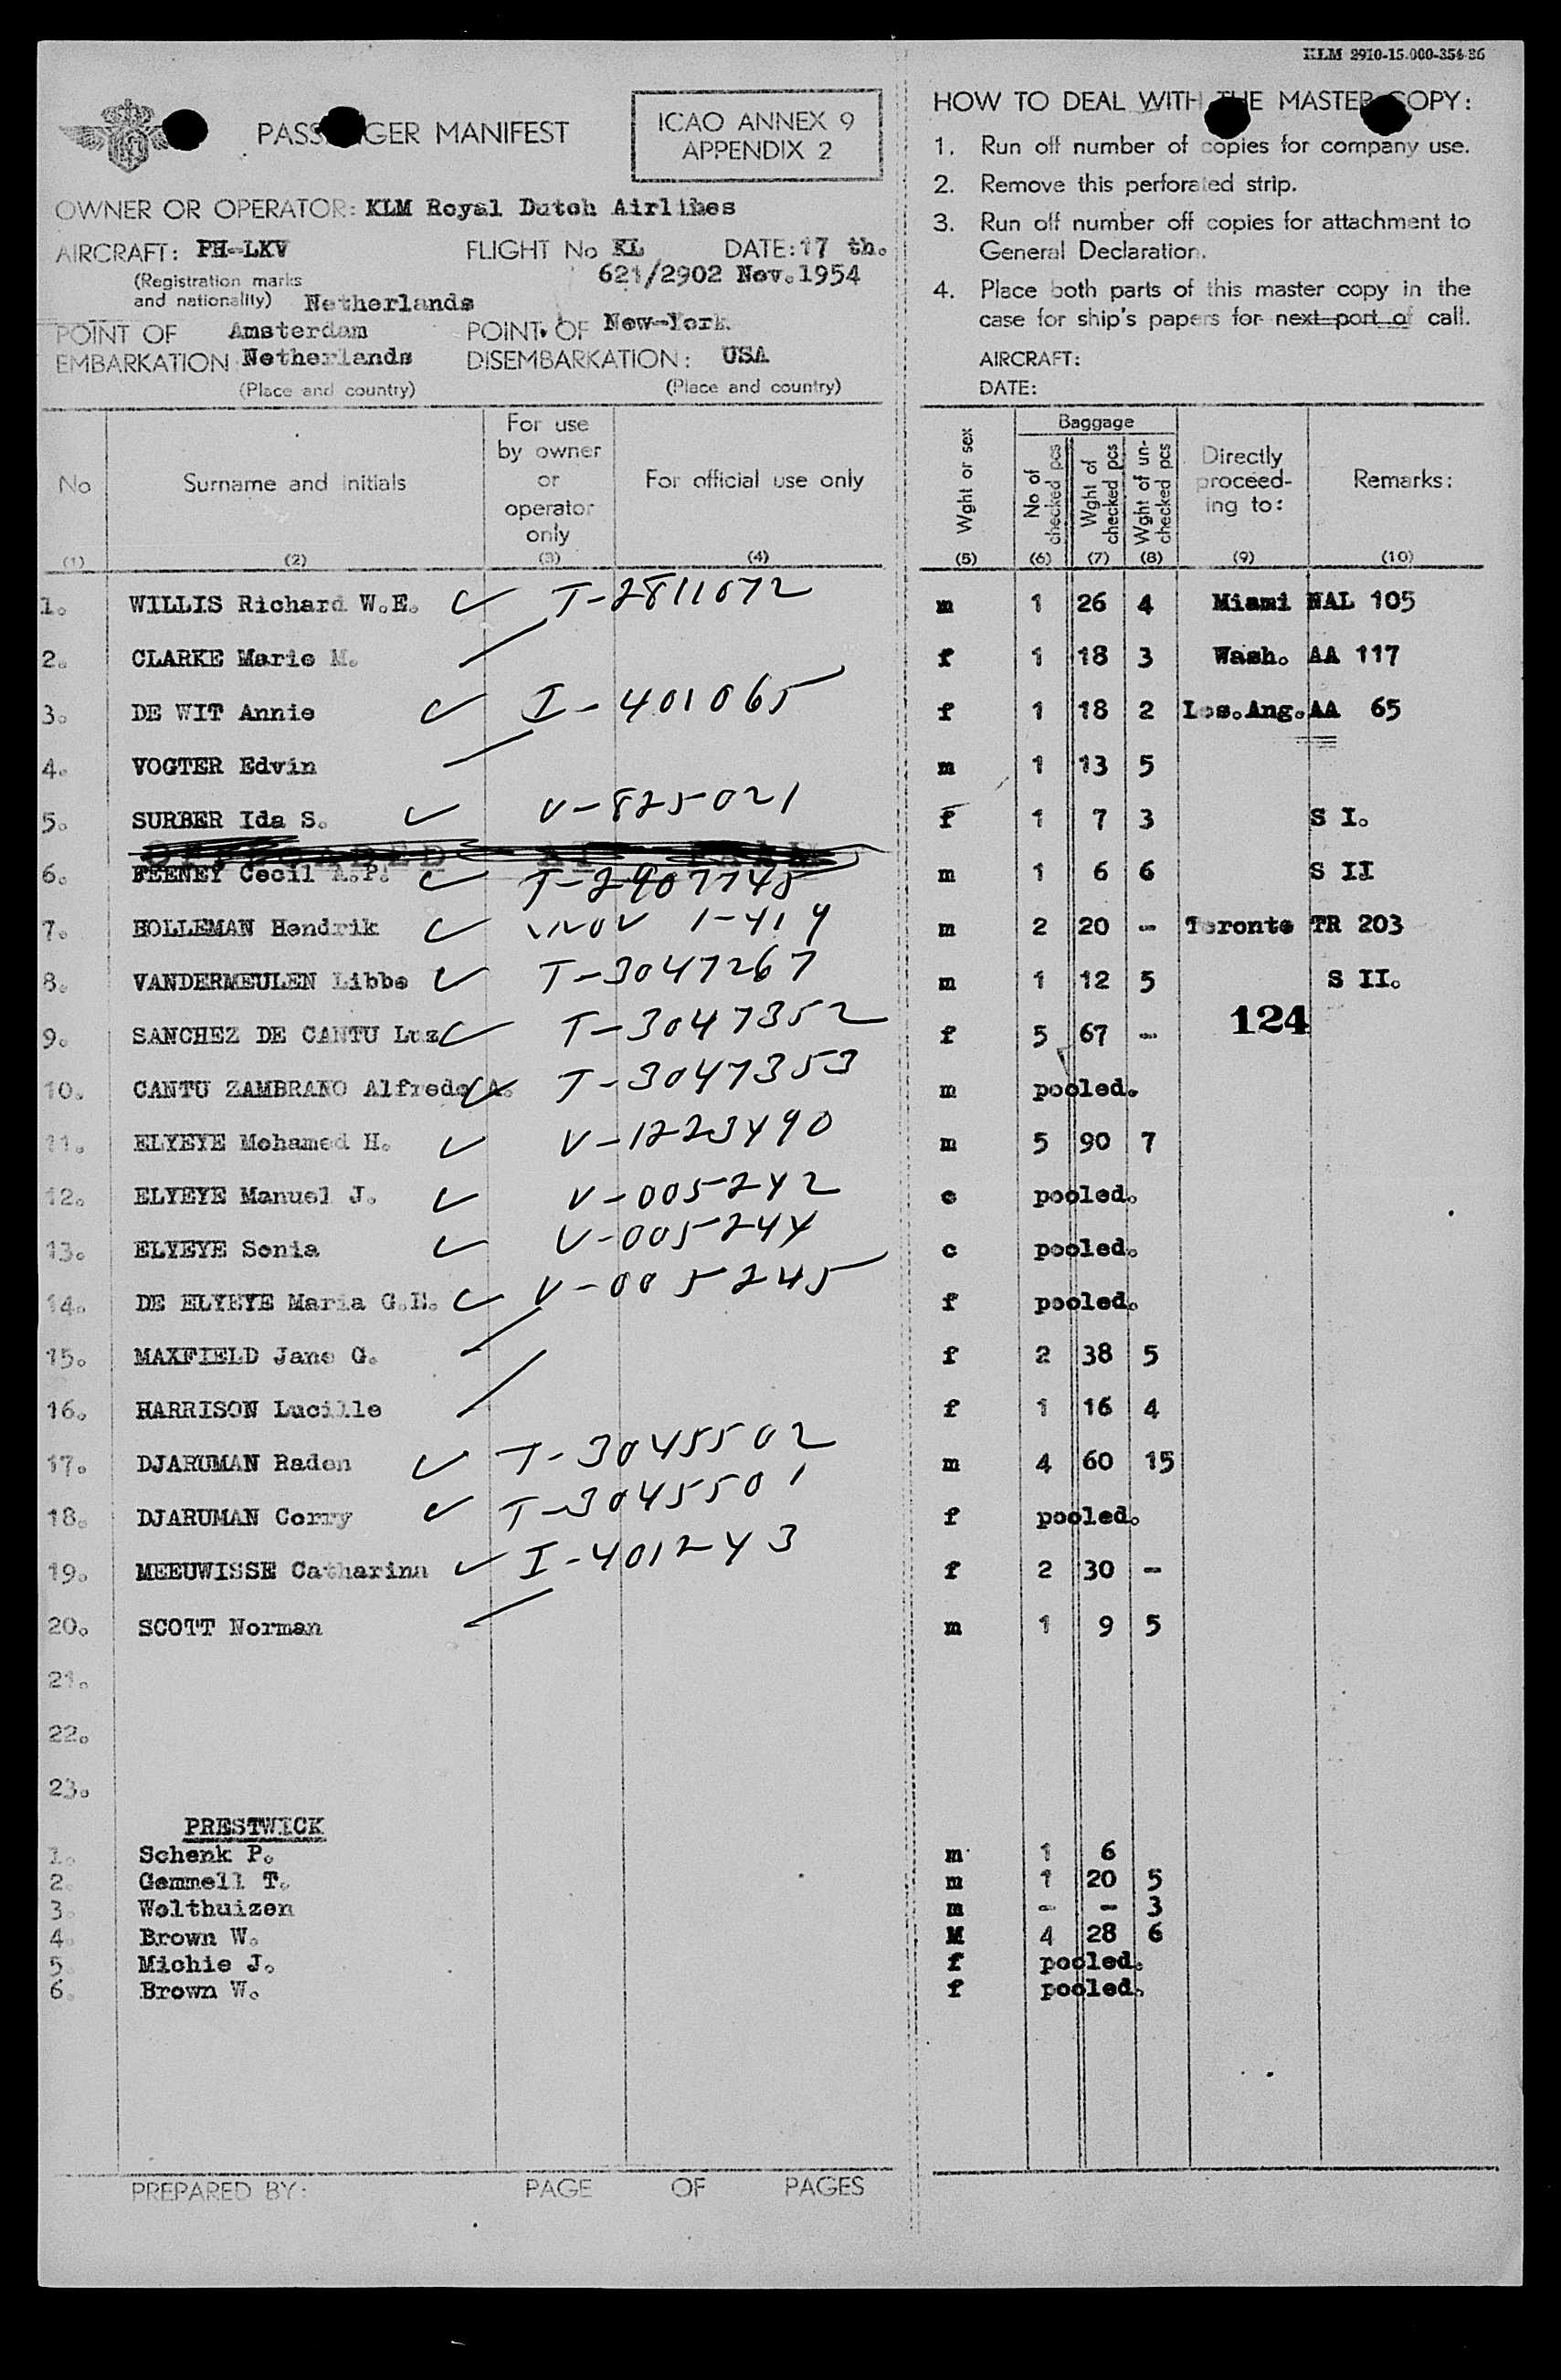 KLM 2910-15.000-354-56
PASSENGER MANIFEST
ICAO ANNEX 9
APPENDIX 2
OWNER OR OPERATOR: KLM Royal Dutch Airlines
AIRCRAFT: PH-LKV
FLIGHT No KL
DATE: 17 th.
621/2902 Nov. 1954
(Registration marks
and nationality) Netherlands
POINT OF Amsterdam
POINT OF New-York
EMBARKATION Netherlands
DISEMBARKATION: USA
(Place and country)
(Place and country)
HOW TO DEAL WITH THE MASTER COPY:
1. Run off number of copies for company use.
2. Remove this perforated strip.
3. Run off number off copies for attachment to
General Declaration.
4. Place both parts of this master copy in the
case for ship's papers for next port of call.
AIRCRAFT:
DATE:
No
Surname and initials
For use
by owner
or
operator
only
For official use only
Wght or sex
Baggage
No of checked pcs
Wght of checked pcs
Wght of un-checked pcs
Directly
proceed-
ing to:
Remarks:
(1) (2) (3) (4) (5) (6) (7) (8) (9) (10)
1. WILLIS Richard W.E. T-2811072 m 1 26 4 Miami NAL 105
2. CLARKE Marie M. f 1 18 3 Wash. AA 117
3. DE WIT Annie I-401065 f 1 18 2 Los.Ang. AA 65
4. VOGTER Edvin m 1 13 5
5. SURBER Ida S. V-825021 f 1 7 3 S I.
OFFLOADED AT
6. FEENEY Cecil A.P. T-2907748 m 1 6 6 S II
7. HOLLEMAN Hendrik 1-419 m 2 20 - Toronto TR 203
8. VANDERMEULEN Libbe T-3047267 m 1 12 5 S II.
9. SANCHEZ DE CANTU Luz T-3047352 f 5 67 -
124
10. CANTU ZAMBRANO Alfredo A. T-3047353 m pooled.
11. ELYEYE Mohamed H. V-1223490 m 5 90 7
12. ELYEYE Manuel J. V-005242 c pooled.
13. ELYEYE Sonia V-005244 c pooled.
14. DE ELYEYE Maria G.E. V-005245 f pooled.
15. MAXFIELD Jane G. f 2 38 5
16. HARRISON Lucille f 1 16 4
17. DJARUMAN Raden T-3045502 m 4 60 15
18. DJARUMAN Corry T-3045501 f pooled.
19. MEEUWISSE Catharina I-401243 f 2 30 -
20. SCOTT Norman m 1 9 5
21.
22.
23.
PRESTWICK
1. Schenk P. m 1 6
2. Gemmell T. m 1 20 5
3. Wolthuizen m - - 3
4. Brown W. M 4 28 6
5. Michie J. f pooled.
6. Brown W. f pooled.
PREPARED BY:
PAGE OF PAGES